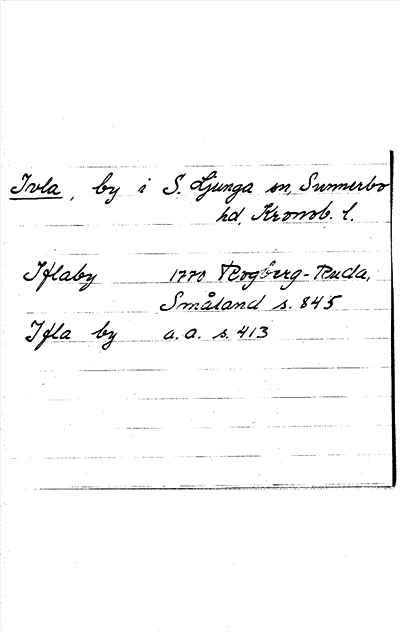 Ivla, by i S. Ljunga sn, Sunnerbo
hd, Kronob. l.
Iflaby 1770 Rogberg-Ruda,
Småland s. 845
Ifla by a.a. s. 413